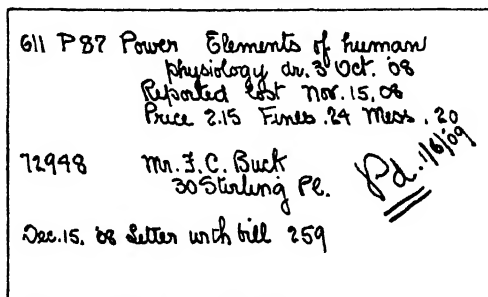 611 P87 Power Elements of human
physiology dr. 3 Oct. '08
Reported lost Nov. 15, 08
Price 2.15 Fines .24 Mess. .20
Pd. 1/6/'09
72948 Mr. F. C. Buck
30 Sterling Pl.
Dec. 15. 08 Letter with bill 259